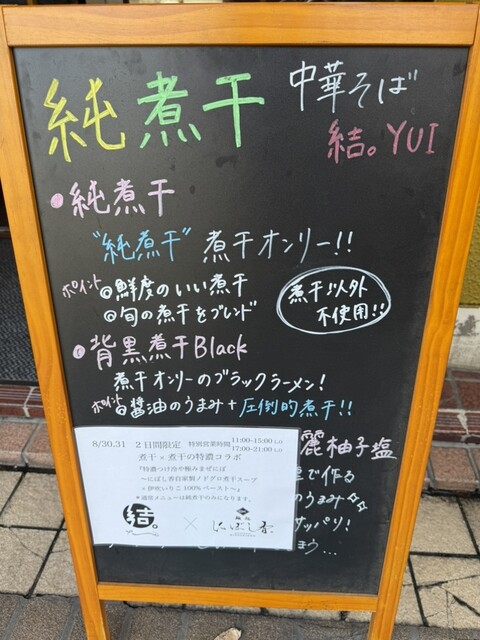 純煮干
中華そば
結。YUI
純煮干
"純煮干" 煮干オンリー!!
ポイント ◎鮮度のいい煮干
◎旬の煮干をブレンド
煮干以外
不使用!!
背黒煮干Black
煮干オンリーのブラックラーメン!
ポイント ◎醤油のうまみ+圧倒的煮干!!
8/30.31 2日間限定 特別営業時間 11:00~15:00 L.O
17:00~21:00 L.O
煮干×煮干の特濃コラボ
『特濃つけ冷や極みまぜにぼ
~にぼし香自家製ノドグロ煮干スープ
×伊吹いりこ100%ペースト~』
*通常メニューは純煮干のみになります。
結。
×
にぼし香
麗柚子塩
で作る
のうまみ☆☆
サッパリ!
まう...